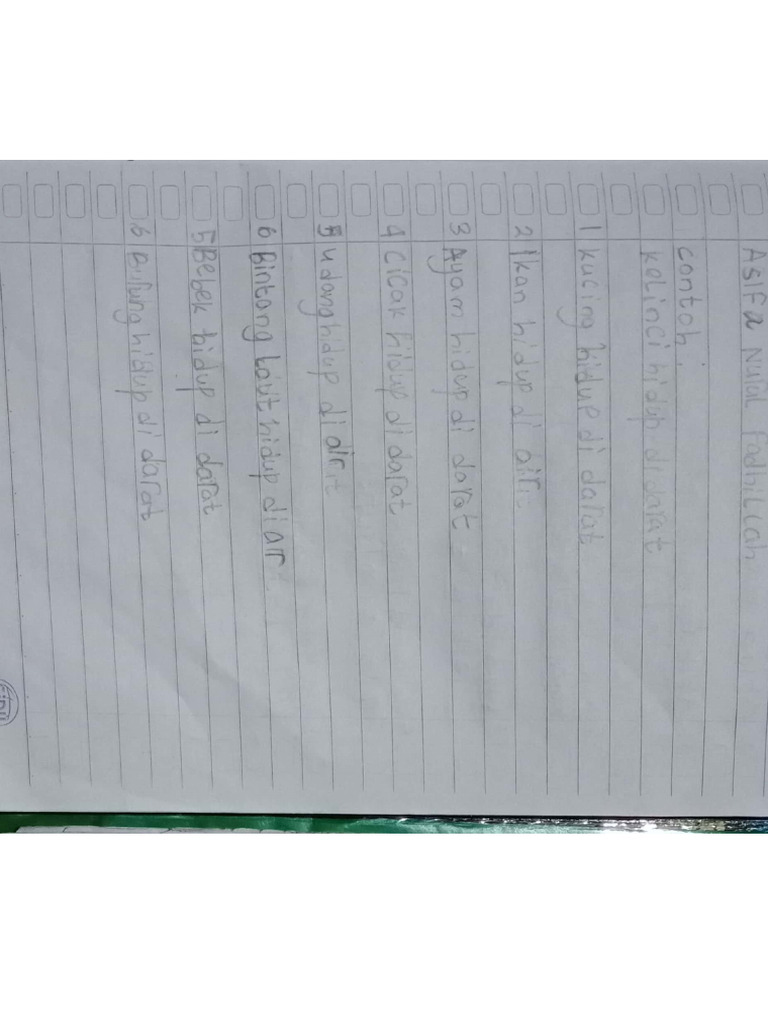 Asifa Nurul Fadhillah
contoh:
kelinci hidup di darat
1 kucing hidup di darat
2 Ikan hidup di air
3 Ayam hidup di darat
4 cicak hidup di darat
5 udang hidup di air
6 Bintang laut hidup di air
5 Bebek hidup di darat
6 Burung hidup di darat